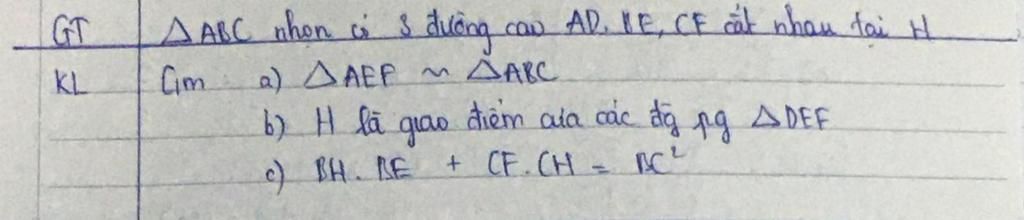 GT △ABC nhọn có 3 đường cao AD, BE, CF cắt nhau tại H
KL Cm a) △AEF ~ △ABC
b) H là giao điểm của các đg pg △DEF
c) BH . BE + CF . CH = BC²